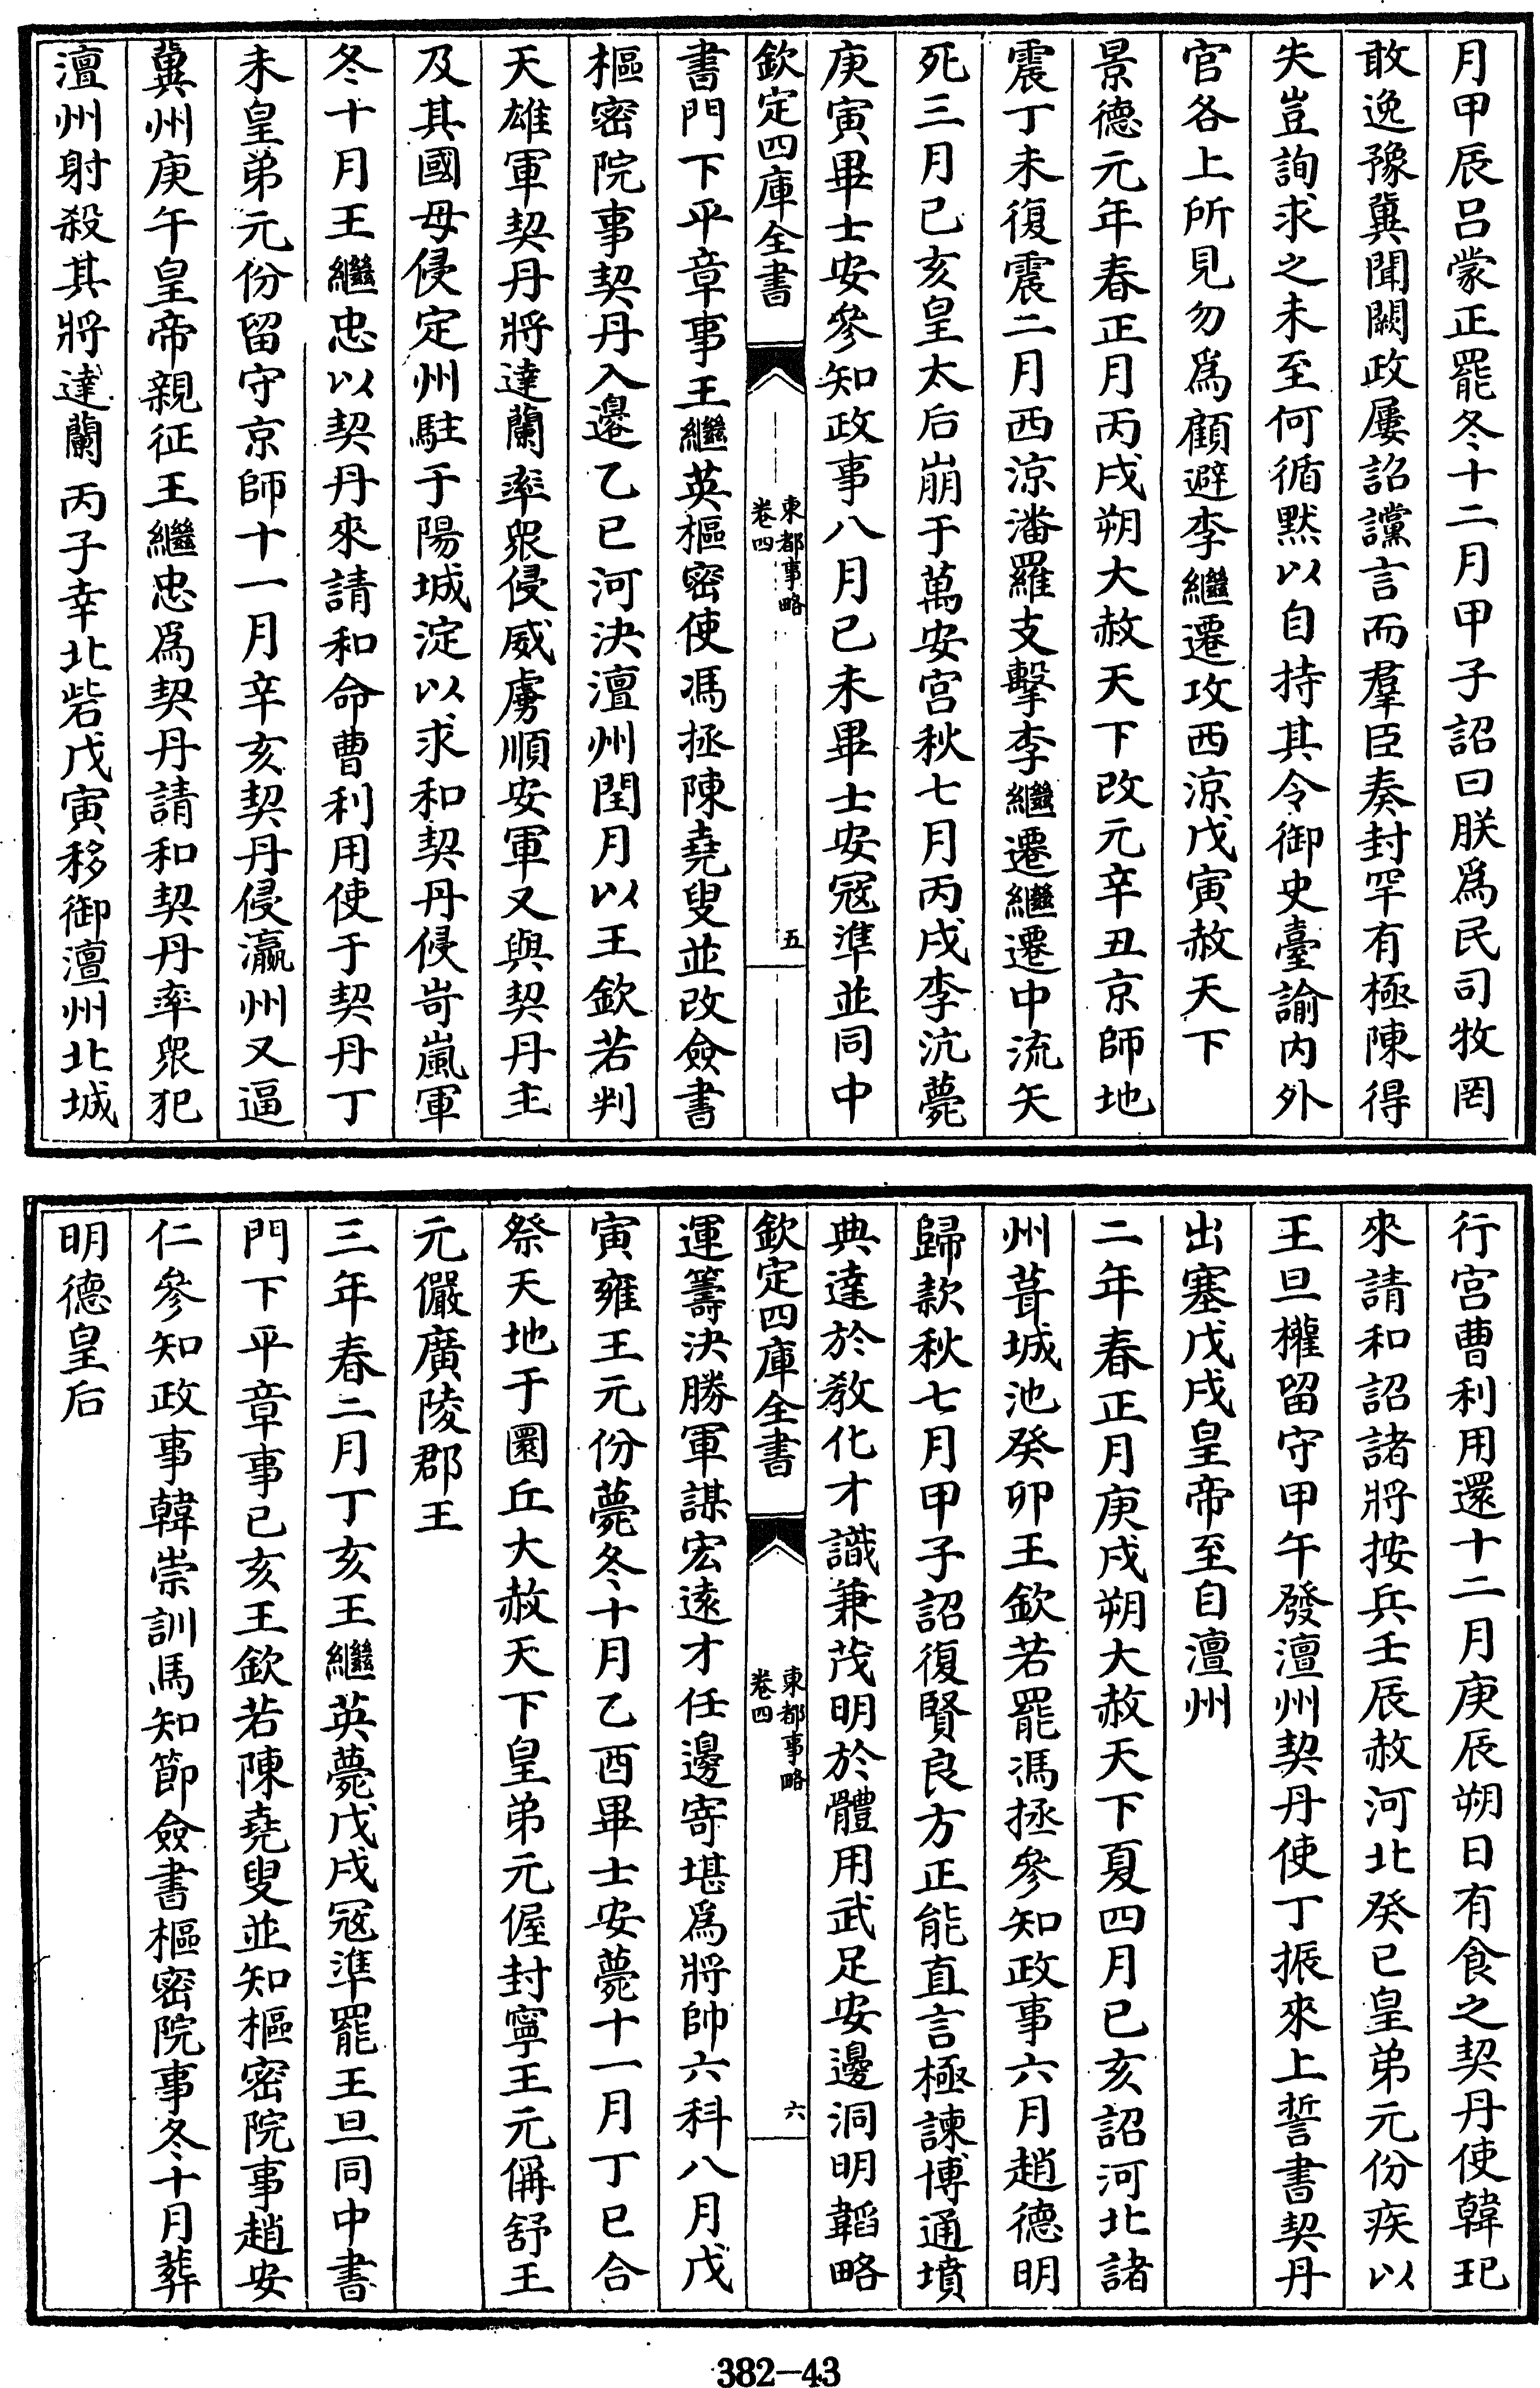 月甲辰呂蒙正罷冬十二月甲子詔曰朕爲民司牧罔
敢逸豫冀聞闕政屢詔讜言而羣臣奏封罕有極陳得
失豈詢求之未至何循默以自持其令御史臺諭内外
官各上所見勿爲顧避李繼遷攻西涼戊寅赦天下
景德元年春正月丙戌朔大赦天下改元辛丑京師地
震丁未復震二月西涼潘羅支擊李繼遷繼遷中流矢
死三月己亥皇太后崩于萬安宮秋七月丙戌李沆薨
庚寅畢士安參知政事八月己未畢士安寇準並同中
欽定四庫全書
東都事略
卷四
五
書門下平章事王繼英樞密使馮拯陳堯叟並改僉書
樞密院事契丹入邊乙巳河決澶州閏月以王欽若判
天雄軍契丹將達蘭率衆侵威虜順安軍又與契丹主
及其國母侵定州駐于陽城淀以求和契丹侵岢嵐軍
冬十月王繼忠以契丹來請和命曹利用使于契丹丁
未皇弟元份留守京師十一月辛亥契丹侵瀛州又逼
冀州庚午皇帝親征王繼忠爲契丹請和契丹率衆犯
澶州射殺其將達蘭丙子幸北砦戊寅移御澶州北城
行宮曹利用還十二月庚辰朔日有食之契丹使韓玘
來請和詔諸將按兵壬辰赦河北癸巳皇弟元份疾以
王旦權留守甲午發澶州契丹使丁振來上誓書契丹
出塞戊戌皇帝至自澶州
二年春正月庚戌朔大赦天下夏四月己亥詔河北諸
州葺城池癸卯王欽若罷馮拯參知政事六月趙德明
歸款秋七月甲子詔復賢良方正能直言極諫博通墳
典達於教化才識兼茂明於體用武足安邊洞明韜略
欽定四庫全書
東都事略
卷四
六
運籌決勝軍謀宏遠才任邊寄堪爲將帥六科八月戊
寅雍王元份薨冬十月乙酉畢士安薨十一月丁巳合
祭天地于圜丘大赦天下皇弟元偓封寧王元偁舒王
元儼廣陵郡王
三年春二月丁亥王繼英薨戊戌寇準罷王旦同中書
門下平章事己亥王欽若陳堯叟並知樞密院事趙安
仁參知政事韓崇訓馬知節僉書樞密院事冬十月葬
明德皇后
382-43